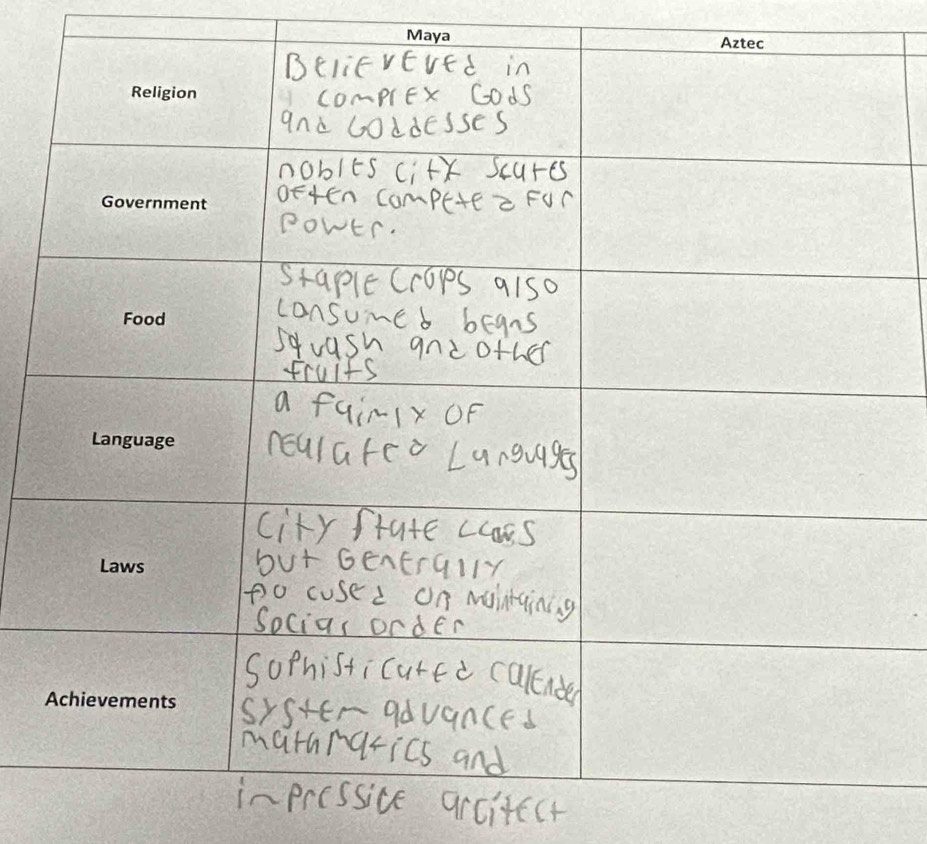 Maya
Aztec
Religion
Believeved in
complex Gods
and Goddesses
Government
nobles city scates
often competed For
Power.
Food
staple crops also
consumed beans
squash and other
fruits
Language
a faimly OF
realated Languages
Laws
City state
but Generally
focused on maintaining
Social order
Achievements
Sophisticated calender
system advanced
mathmatics and
impressice arcitect